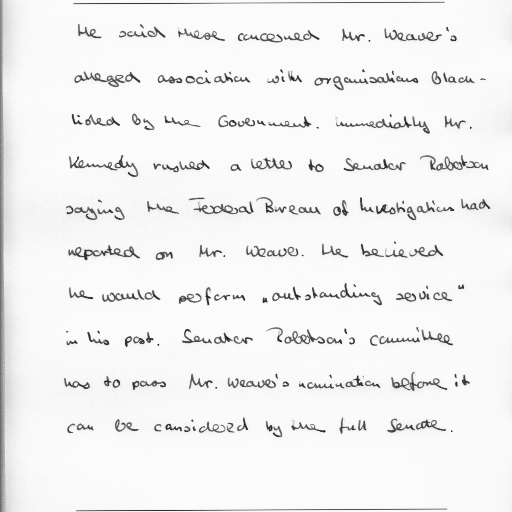 He said these concerned Mr. Weaver's
alleged association with organisations black-
listed by the Government. Immediately Mr.
Kennedy rushed a letter to Senator Robertson
saying the Federal Bureau of Investigation had
reported on Mr. Weaver. He believed
he would perform „outstanding service"
in his post. Senator Robertson's committee
has to pass Mr. Weaver's nomination before it
can be considered by the full Senate.